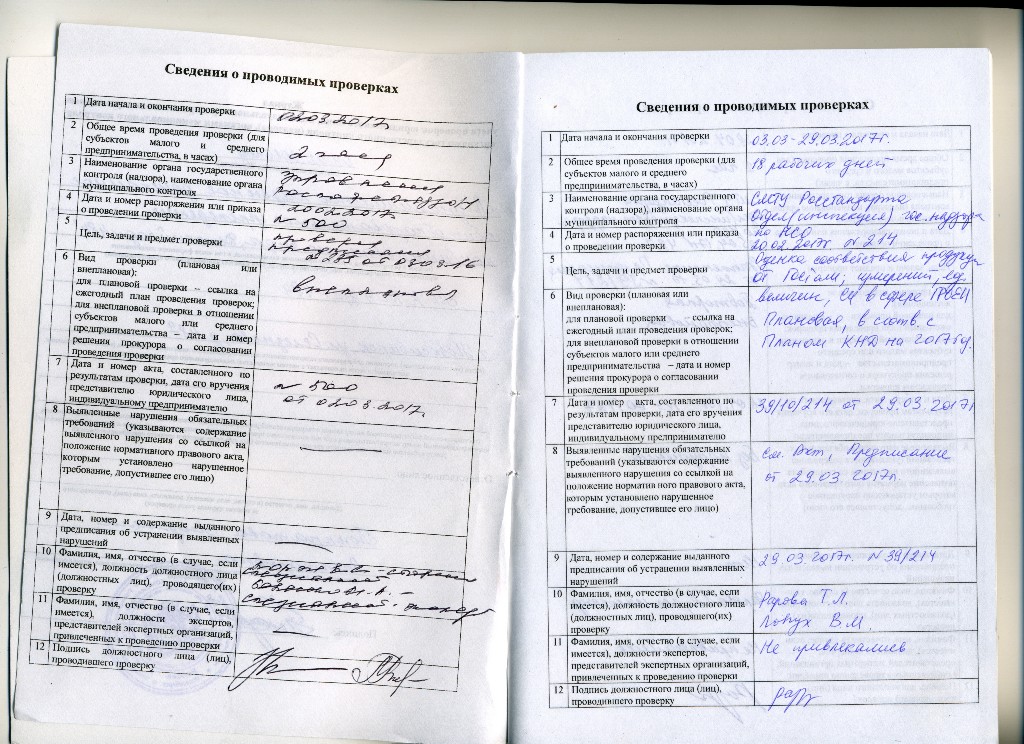 Сведения о проводимых проверках
1 Дата начала и окончания проверки
02.03.2017г.
2 Общее время проведения проверки (для
субъектов малого и среднего
предпринимательства, в часах)
2 часа
3 Наименование органа государственного
контроля (надзора), наименование органа
муниципального контроля
4 Дата и номер распоряжения или приказа
о проведении проверки
20.02.2017г.
№ 500
5
Цель, задачи и предмет проверки
проверка
предписания
от 03.03.16
6 Вид проверки (плановая или
внеплановая):
для плановой проверки – ссылка на
ежегодный план проведения проверок;
для внеплановой проверки в отношении
субъектов малого или среднего
предпринимательства – дата и номер
решения прокурора о согласовании
проведения проверки
внеплановая
7 Дата и номер акта, составленного по
результатам проверки, дата его вручения
представителю юридического лица,
индивидуальному предпринимателю
№ 500
от 02.03.2017г.
8 Выявленные нарушения обязательных
требований (указываются содержание
выявленного нарушения со ссылкой на
положение нормативного правового акта,
которым установлено нарушенное
требование, допустившее его лицо)
—
9 Дата, номер и содержание выданного
предписания об устранении выявленных
нарушений
—
10 Фамилия, имя, отчество (в случае, если
имеется), должность должностного лица
(должностных лиц), проводящего(их)
проверку
11 Фамилия, имя, отчество (в случае, если
имеется), должности экспертов,
представителей экспертных организаций,
привлеченных к проведению проверки
—
12 Подпись должностного лица (лиц),
проводившего проверку
Сведения о проводимых проверках
1 Дата начала и окончания проверки
03.03-29.03.2017г.
2 Общее время проведения проверки (для
субъектов малого и среднего
предпринимательства, в часах)
18 рабочих дней
3 Наименование органа государственного
контроля (надзора), наименование органа
муниципального контроля
СМТУ Росстандарта
Отдел (инспекция) гос. надзора
по НСО
4 Дата и номер распоряжения или приказа
о проведении проверки
20.02.2017г. № 214
5
Цель, задачи и предмет проверки
Оценка соответствия продукции
от Гостам; измерений, ед.
величин, СИ в сфере ГРОЕИ
6 Вид проверки (плановая или
внеплановая):
для плановой проверки – ссылка на
ежегодный план проведения проверок;
для внеплановой проверки в отношении
субъектов малого или среднего
предпринимательства – дата и номер
решения прокурора о согласовании
проведения проверки
Плановая, в соотв. с
Планом КНД на 2017г.
7 Дата и номер акта, составленного по
результатам проверки, дата его вручения
представителю юридического лица,
индивидуальному предпринимателю
39/10/214 от 29.03.2017г
8 Выявленные нарушения обязательных
требований (указываются содержание
выявленного нарушения со ссылкой на
положение норматив ного правового акта,
которым установлено нарушенное
требование, допустившее его лицо)
см. Акт, Предписание
от 29.03 2017г.
9 Дата, номер и содержание выданного
предписания об устранении выявленных
нарушений
29.03.2017г. № 39/214
10 Фамилия, имя, отчество (в случае, если
имеется), должность должностного лица
(должностных лиц), проводящего(их)
проверку
Т.Л.
Лопух В.М.
11 Фамилия, имя, отчество (в случае, если
имеется), должности экспертов,
представителей экспертных организаций,
привлеченных к проведению проверки
Не привлекались
12 Подпись должностного лица (лиц),
проводившего проверку